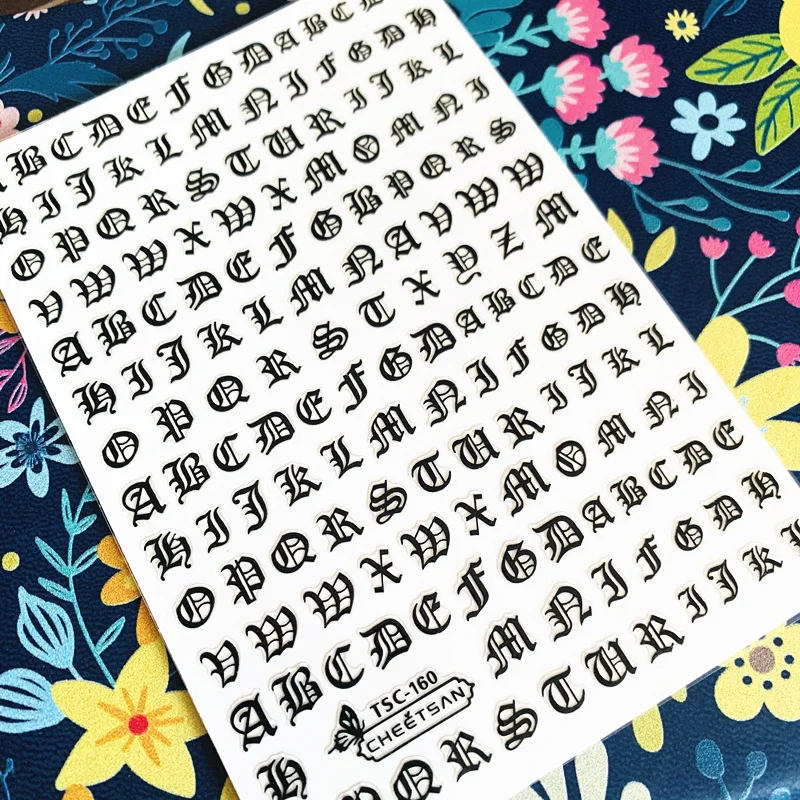 B C D E F G D A B C D
H I J K L M N I F G D H
O P Q R S T U R I J K L
V W W X W X M O M N I
A B C D E F G B P Q R S
H I J K L M N A V W W
O P Q R S T X Y Z M
A B C D E F G D A B C D E
H I J K L M N I F G D H
O P Q R S T U R I J K L
V W W X W X M O M N I
A B C D E F G D A B C D E
H M N I F G D H
TSC-160
CHEETSAN
Q R S T U R I J K